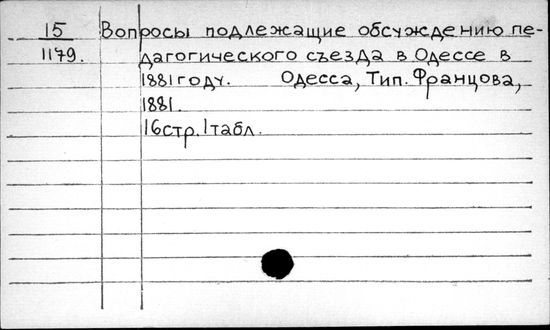 15 Вопросы подлежащие обсуждению пе-
1179. дагогического съезда в Одессе в
1881 году. Одесса, Тип. Францова,
1881.
16 стр. 1 табл.